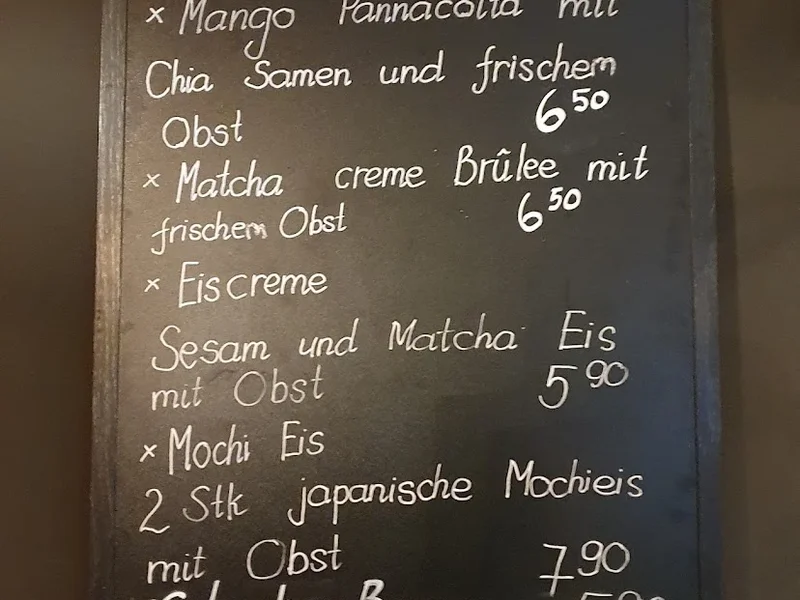 × Mango Pannacotta mit
Chia Samen und frischem
Obst 6 50
× Matcha creme Brûlee mit
frischem Obst 6 50
× Eiscreme
Sesam und Matcha Eis
mit Obst 5 90
× Mochi Eis
2 Stk japanische Mochieis
mit Obst 7 90